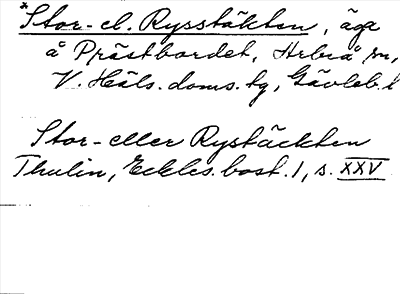 *Stor- el. Rysstäkten, äga
å Prästbordet, Arbrå sn,
V. Häls. doms. tg, Gävleb. l
Stor- eller Rystäckten
Thulin, Eckles. bost. 1, s. XXV